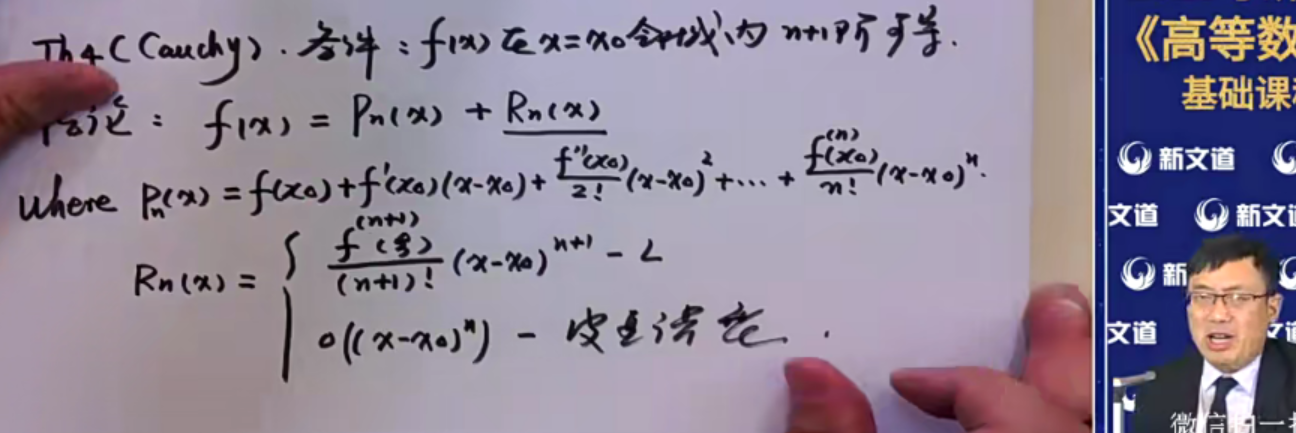 Th4 (Cauchy). 条件: f(x)在x=x0邻域内 n+1阶可导.
结论: f(x) = Pn(x) + Rn(x)
where Pn(x) = f(x0)+f'(x0)(x-x0)+f''(x0)/2!(x-x0)²+...+f⁽ⁿ⁾(x0)/n!(x-x0)ⁿ.
Rn(x) = { f⁽ⁿ⁺¹⁾(ξ)/(n+1)! (x-x0)ⁿ⁺¹ - L
o((x-x0)ⁿ) - 皮亚诺
《高等数
基础课
新文道
文道 新文道
新
文道
微信扫一扫